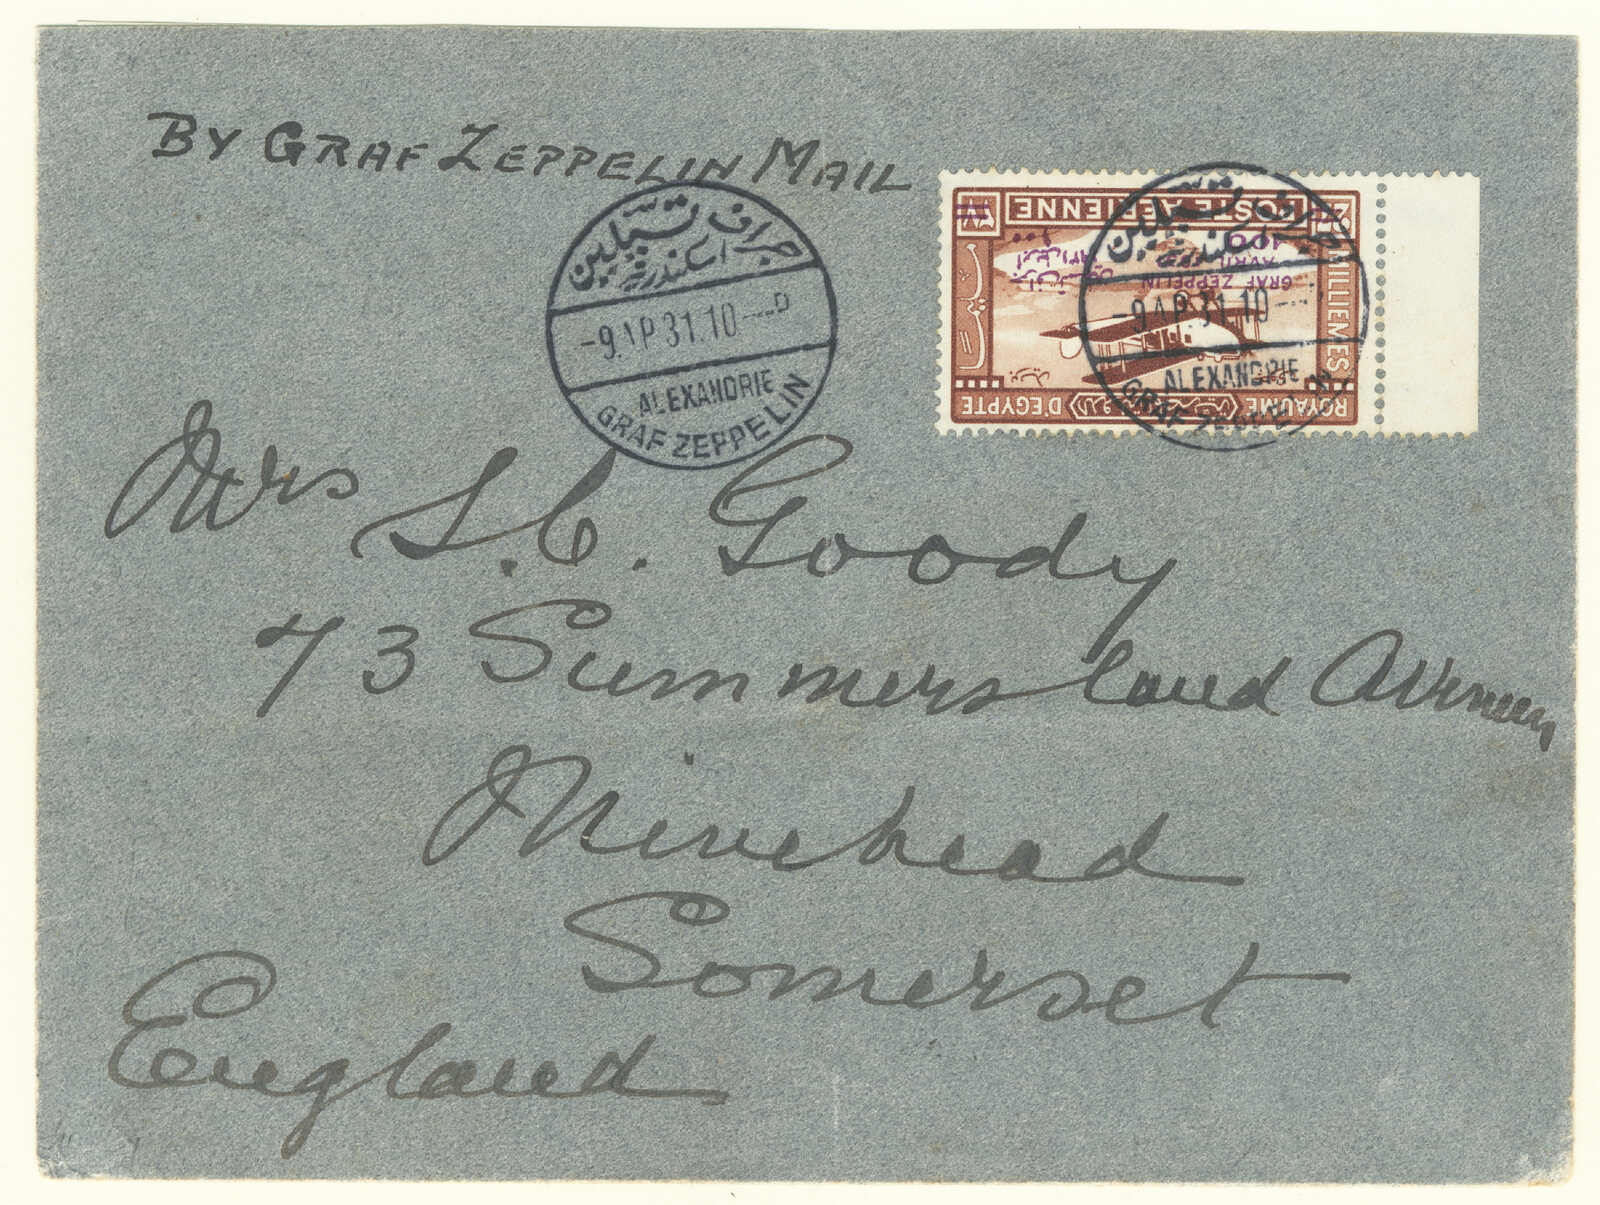 BY GRAF ZEPPELIN MAIL
جراف تسپلين
اسكندرية
-9.AP 31.10-
ALEXANDRIE
GRAF ZEPPELIN
POSTE AÉRIENNE
MILLIEMES
GRAF ZEPPELIN
AVRIL
100
ROYAUME D'EGYPTE
جراف تسپلين
اسكندرية
-9AP 31.10-
ALEXANDRIE
GRAF ZEPPELIN
Mrs S. C. Goody
73 Summersland Avenue
Minehead
Somerset
England